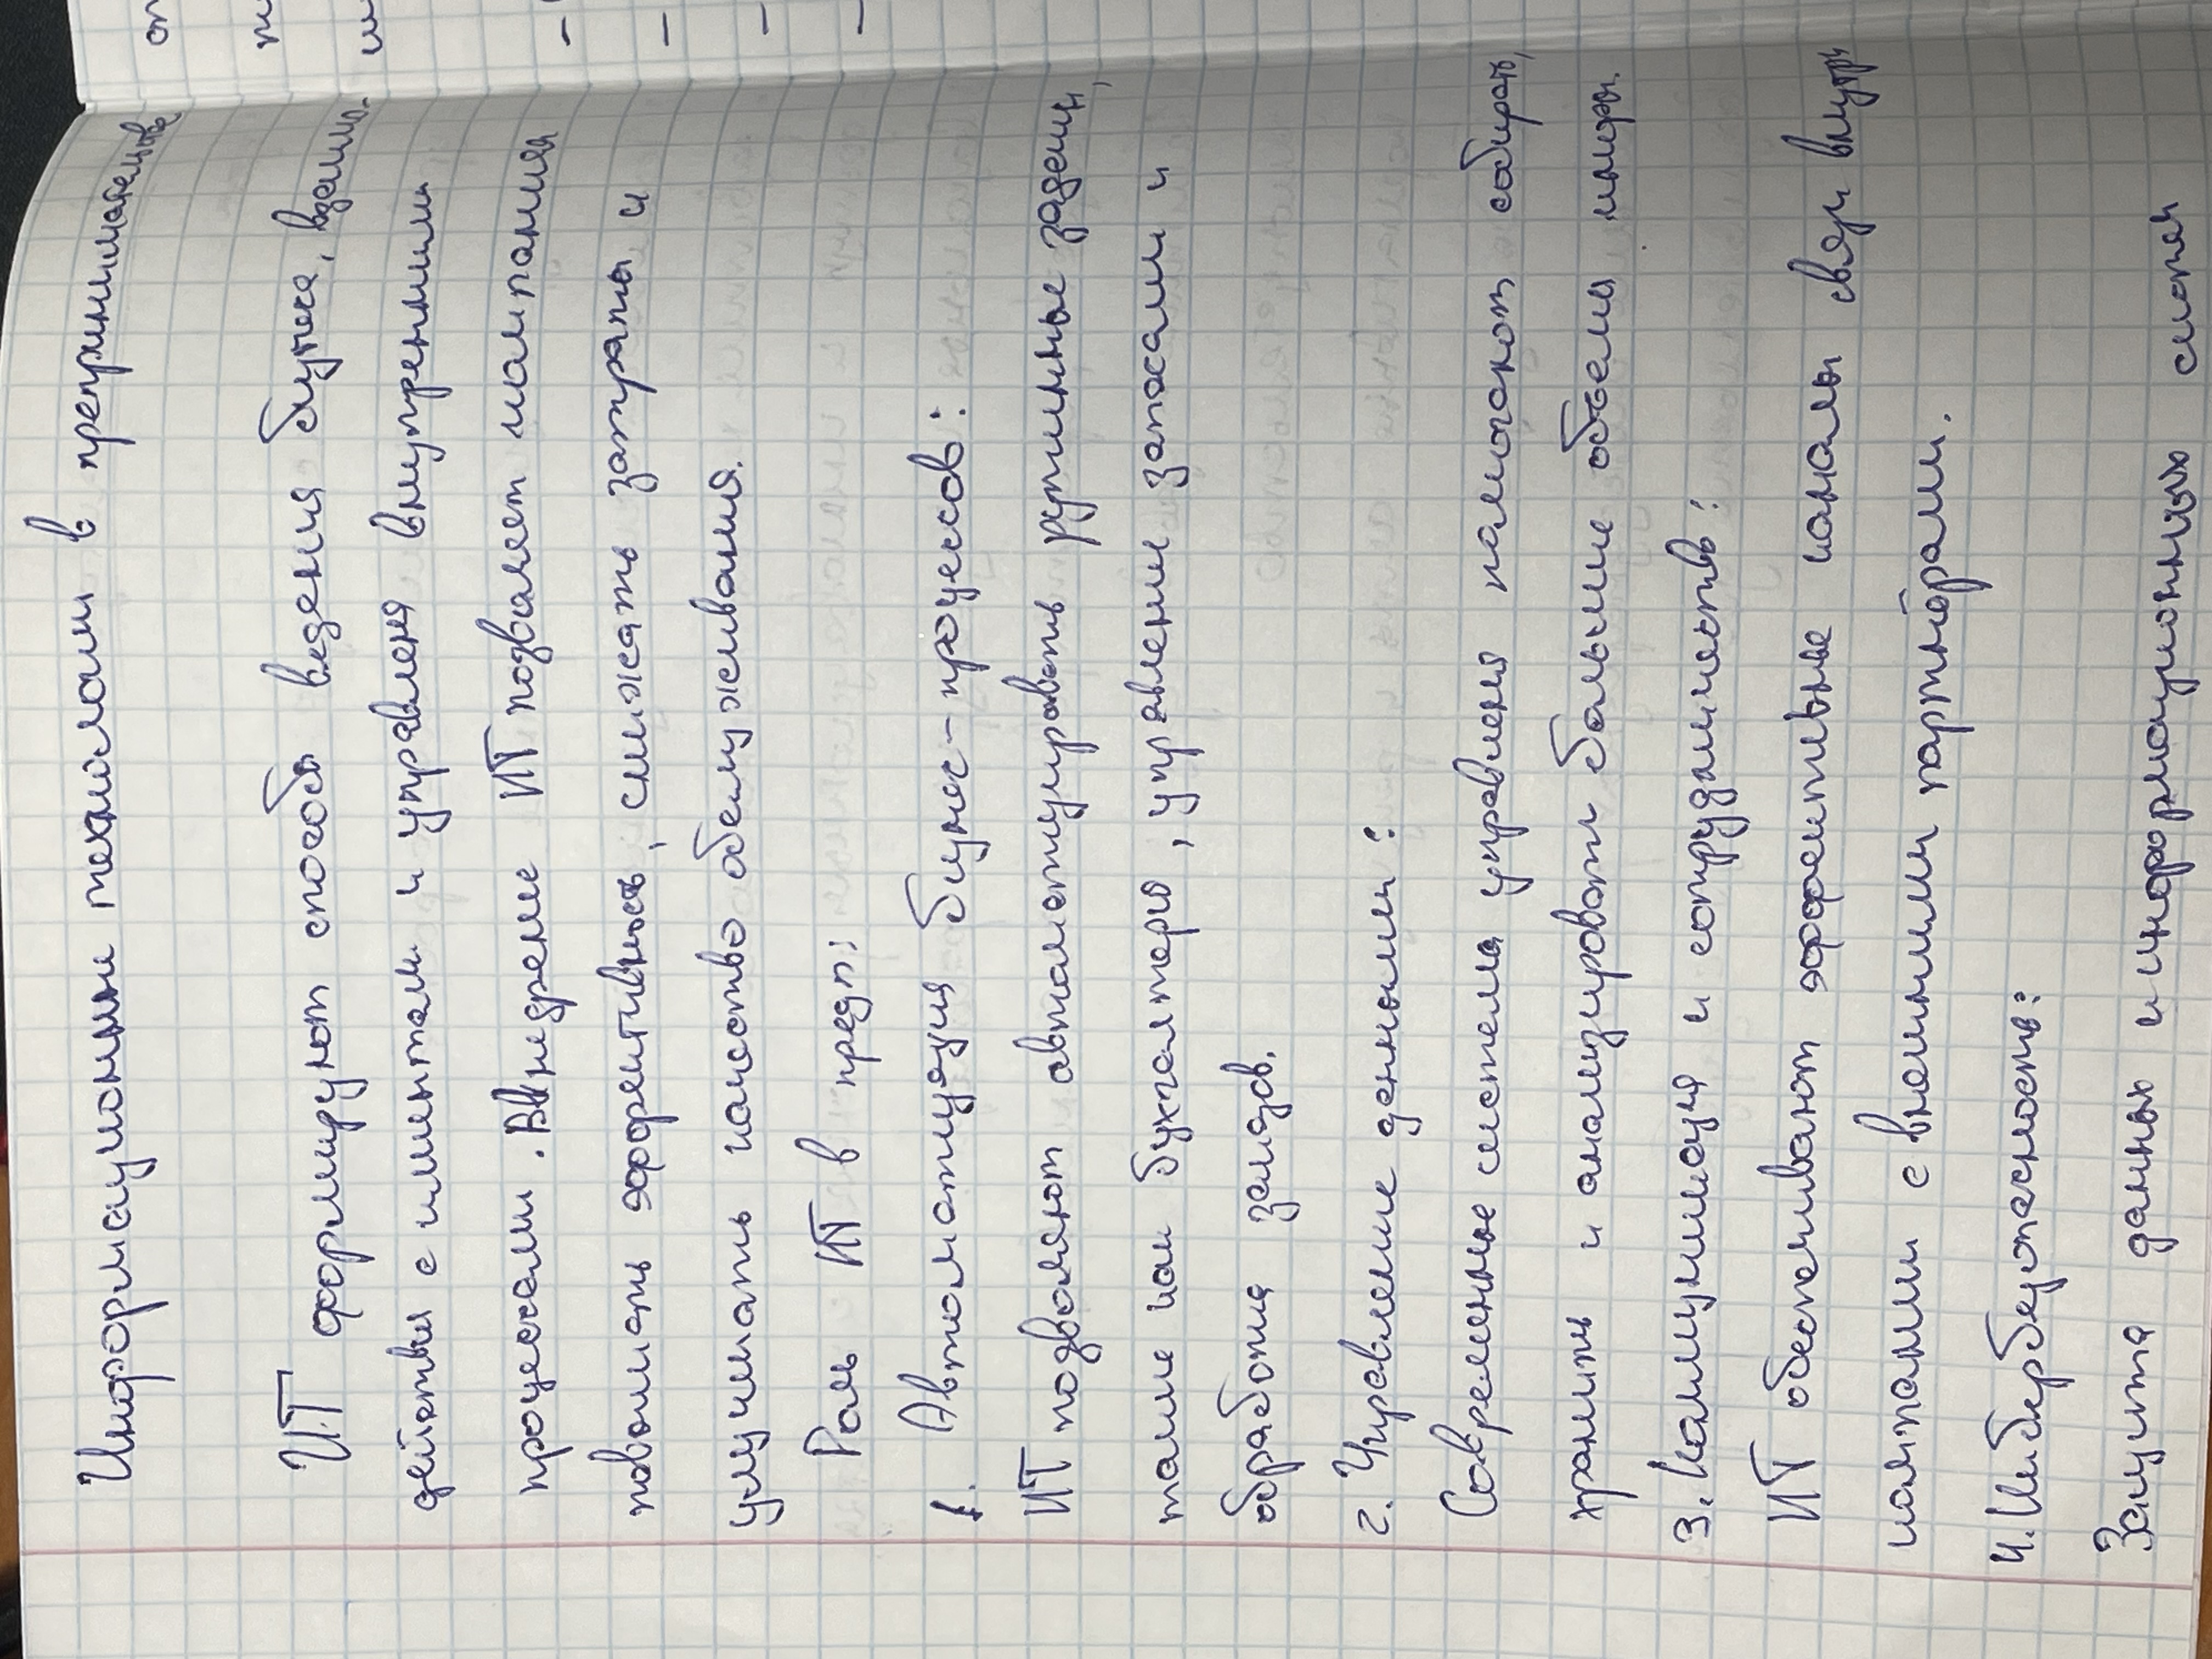 Информационнн технологи в препринимательтв
ИТ формируют спообы ведения бизнеса, взаимо-
действия с клиентам и управленя внутренними
процессами. Внедрене ИТ позваляет компаниям
повышать эффективность, снижать затраты и
улучшать качаство обслуживания.
Роль ИТ в предп:
1. Автоматизация бизнес-процессов:
ИТ позволяют автоматизировать рутинные задачи,
такие как бухгалтерю, управление запасами и
обработка заказов.
2. Упровление данными:
Современные система управленя помогают собирать,
хранить и анализировать большие объемы информ.
3. Коммуникация и сотрудничество:
ИТ обеспечивают эффективные каналы связи внутри
компании с внешними партнёрами.
4. Кибербезопасность:
Защита данных и информационных систем
от